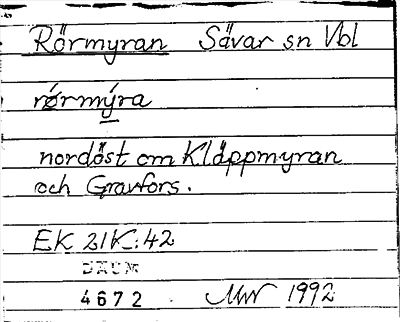 Rörmyran Sävar sn Vbl
rö́rmýra
nordöst om Kläppmyran
och Gravfors.
EK 21K:42
DAUM
4672 . MW 1992